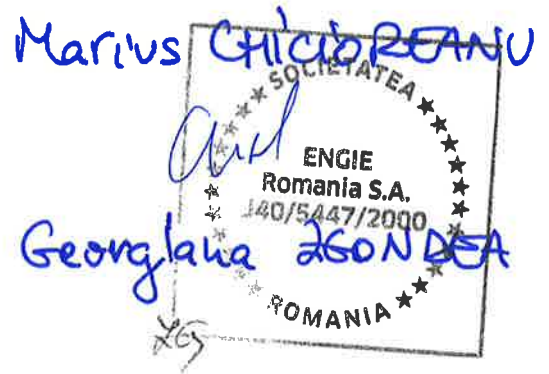 Marius CHICIOREANU
SOCIETATEA
ENGIE
Romania S.A.
J40/5447/2000
Georgiana ZGONDEA
ROMANIA